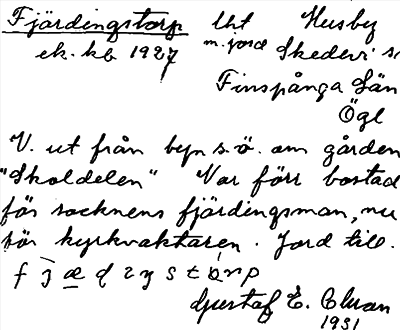 Fjärdingstorp lht Husby
ek. kb 1927 m. jord Skedevi s
Finspånga Län
Ögl
V. ut från byn s.ö. om gården
"Skoldelen" Var förr bostad
för socknens fjärdingsman, nu
för kyrkvaktaren. Jord till.
Gustaf E. Cluan
1931